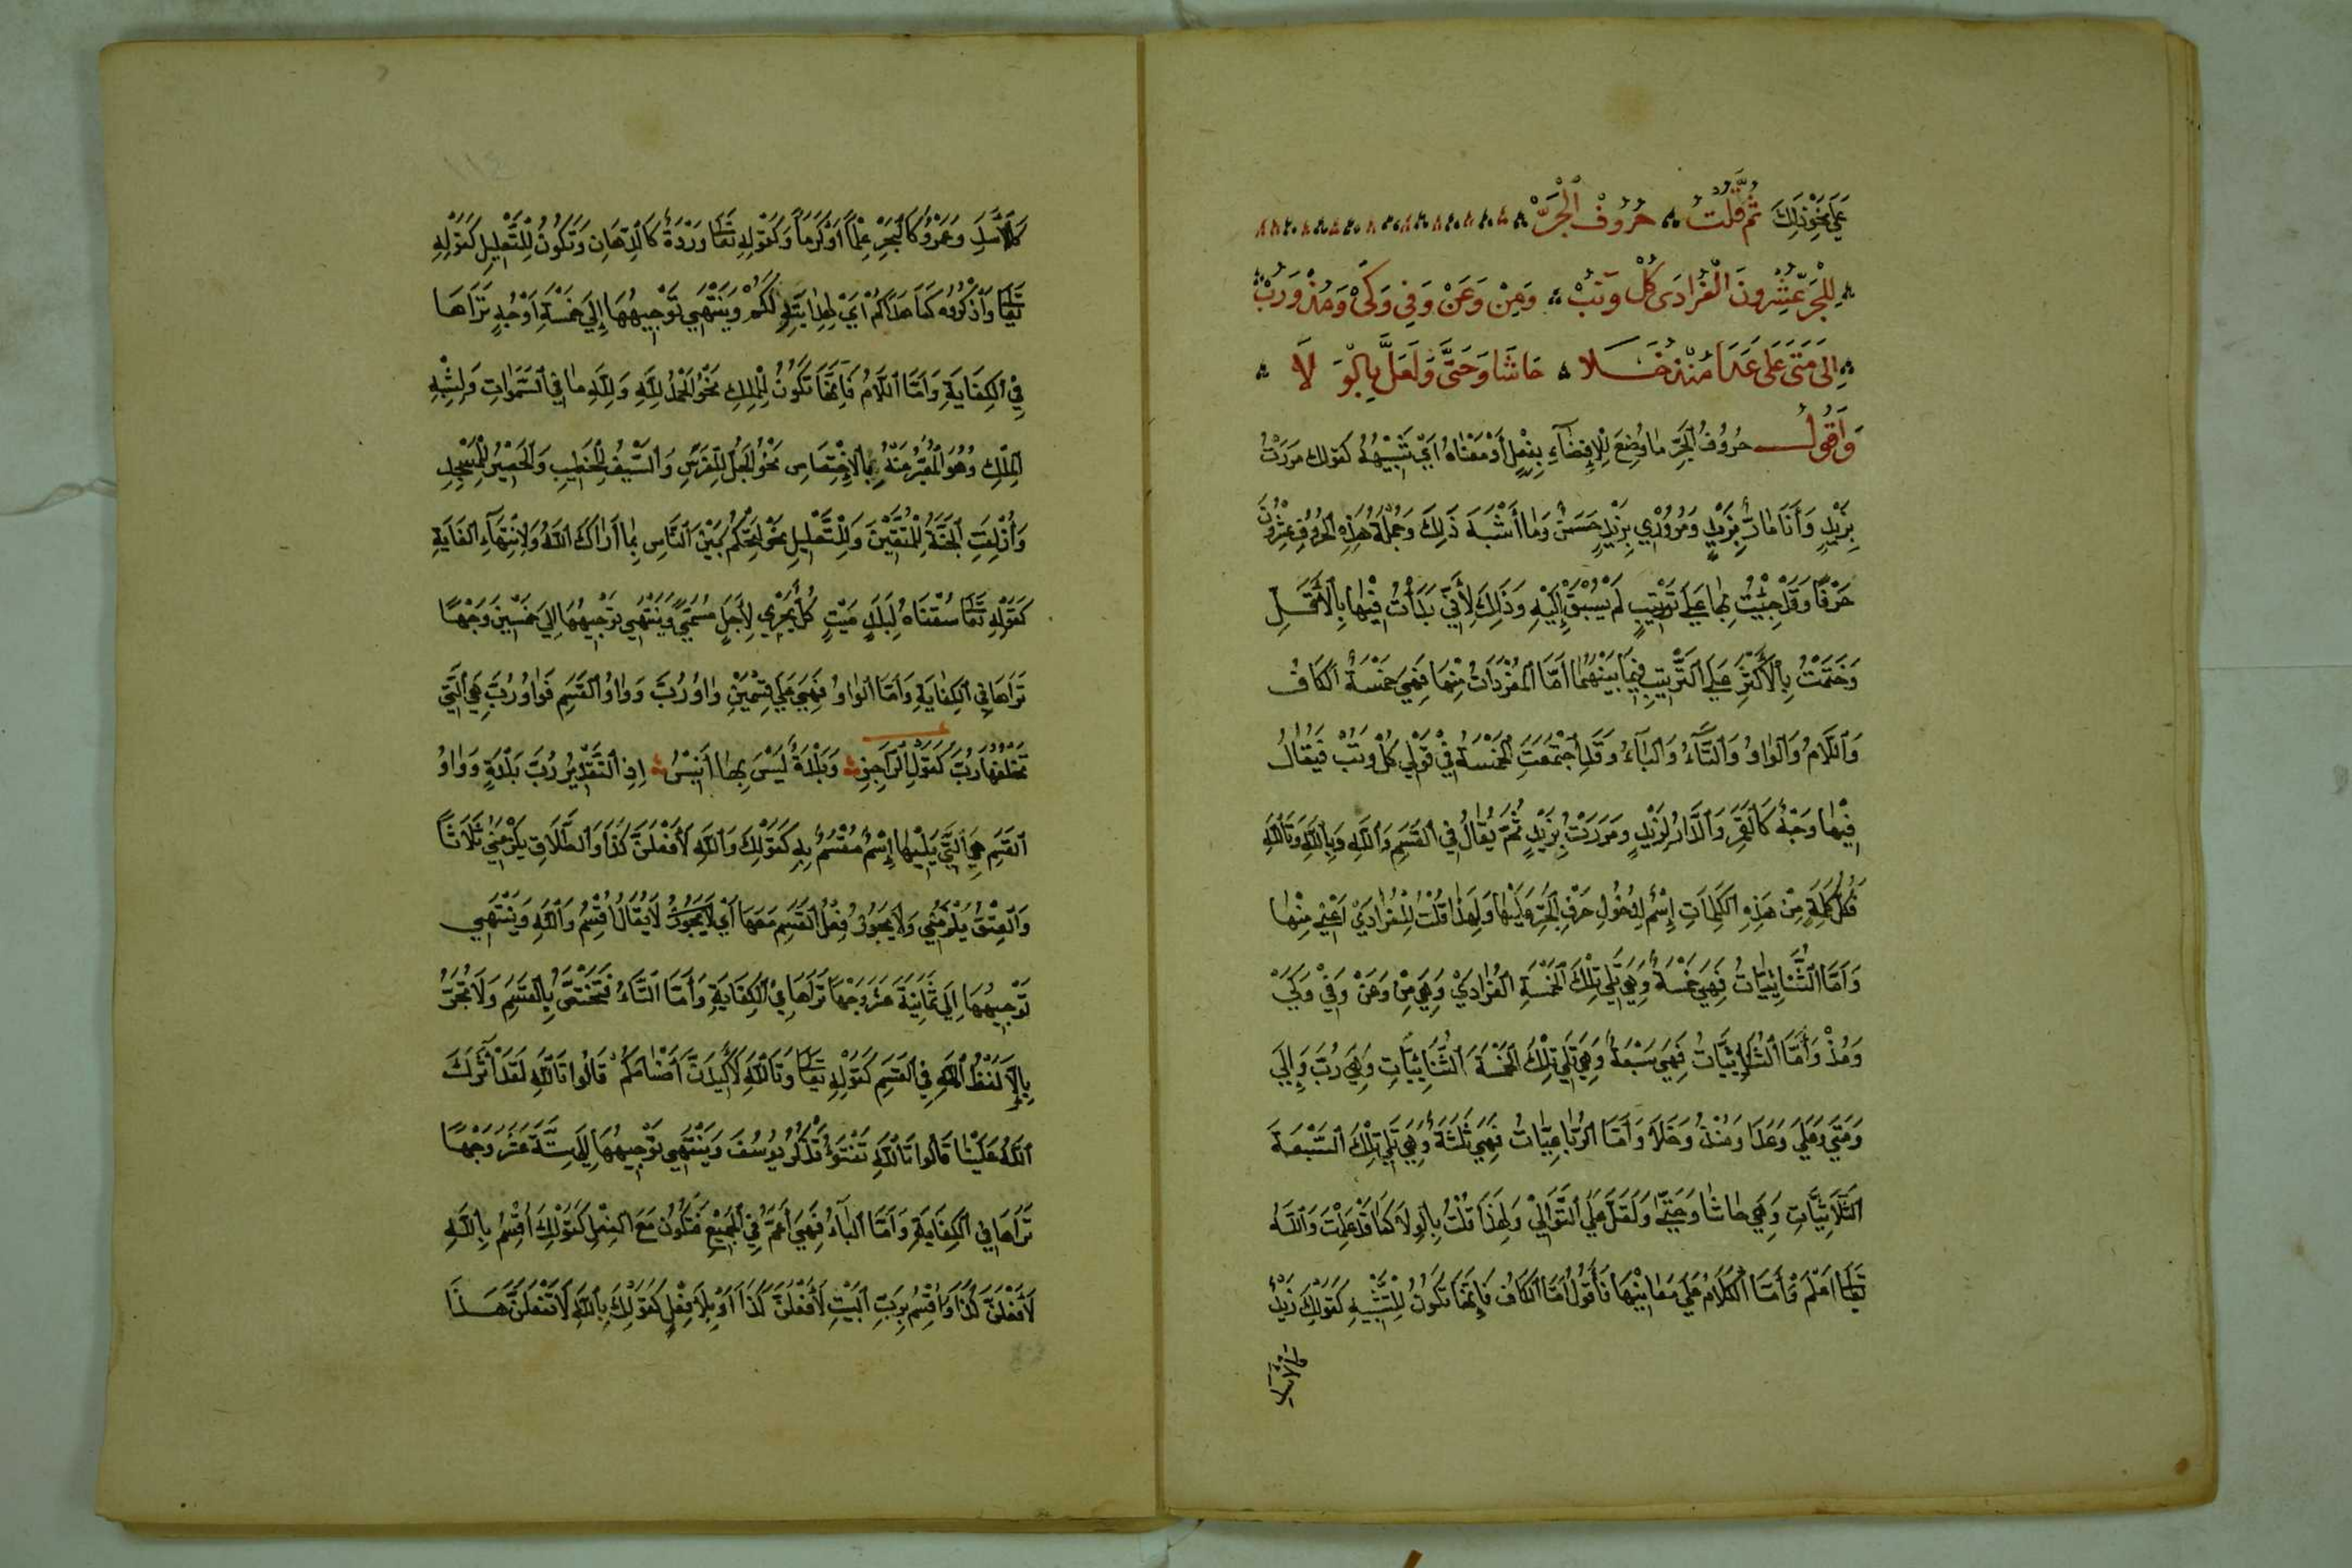 عَلَى نَحْوِ ذَلِكَ ثُمَّ قُلْتُ حُرُوفُ الْجَرِّ
لِلْجَرِّ عِشْرُونَ الْفُرَادَى كُلٌّ وَتَبْ وَمِنْ وَعَنْ وَفِي وَكَيْ وَمُذْ وَرُبْ
إِلَى مَتَى عَلَى عَدَا مُنْذُ خَلَا حَاشَا وَحَتَّى وَلَعَلَّ بِالْوَلَا
وَأَقُولُ حُرُوفُ الْجَرِّ مَا وُضِعَ لِلْإِفْضَاءِ بِفِعْلٍ أَوْ مَعْنَاهُ أَيْ شَبِيهُهُ كَقَوْلِكَ مَرَرْتُ
بِزَيْدٍ وَأَنَا مَارٌّ بِزَيْدٍ وَمُرُورِي بِزَيْدٍ حَسَنٌ وَمَا أَشْبَهَ ذَلِكَ وَجُمْلَةُ هَذِهِ الْحُرُوفِ عِشْرُونَ
حَرْفًا وَقَدْ جِئْتُ بِهَا عَلَى تَرْتِيبٍ لَمْ يُسْبَقْ إِلَيْهِ وَذَلِكَ لِأَنِّي بَدَأْتُ فِيهَا بِالْأَقَلِّ
وَخَتَمْتُ بِالْأَكْثَرِ عَلَى التَّرْتِيبِ فِيمَا بَيْنَهُمَا أَمَّا الْمُفْرَدَاتُ مِنْهَا فَهِيَ خَمْسَةٌ الْكَافُ
وَاللَّامُ وَالْوَاوُ وَالتَّاءُ وَالْبَاءُ وَقَدِ اجْتَمَعَتِ الْخَمْسَةُ فِي قَوْلِي كُلٌّ وَتَبْ فَيُقَالُ
فِيهَا وَجْهُهُ كَالْقَمَرِ وَالدَّارُ لِزَيْدٍ وَمَرَرْتُ بِزَيْدٍ ثُمَّ يُقَالُ فِي الْقَسَمِ وَاللَّهِ وَبِاللَّهِ وَتَاللَّهِ
فَكُلُّ كَلِمَةٍ مِنْ هَذِهِ الْكَلِمَاتِ إِسْمٌ لِدُخُولِ حَرْفِ الْجَرِّ عَلَيْهَا وَلِهَذَا قُلْتُ الْفُرَادَى أَعْنِي مِنْهَا
وَأَمَّا الثُّنَائِيَّاتُ فَهِيَ خَمْسَةٌ وَهِيَ تَلِي تِلْكَ الْخَمْسَةِ الْفُرَادَى وَهِيَ مِنْ وَعَنْ وَفِي وَكَيْ
وَمُذْ وَأَمَّا الثُّلَاثِيَّاتُ فَهِيَ سَبْعَةٌ وَهِيَ تَلِي تِلْكَ الْخَمْسَةَ الثُّنَائِيَّاتِ وَهِيَ رُبَّ وَإِلَى
وَمَتَى وَعَلَى وَعَدَا وَمُنْذُ وَخَلَا وَأَمَّا الرُّبَاعِيَّاتُ فَهِيَ ثَلَثَةٌ وَهِيَ تَلِي تِلْكَ السَّبْعَةَ
الثَّلَاثِيَّاتِ وَهِيَ حَاشَا وَحَتَّى وَلَعَلَّ عَلَى التَّوَالِي وَلِهَذَا قُلْتُ بِالْوِلَا كَمَا قَدْ عَلِمْتَ وَاللَّهُ
تَعَالَى أَعْلَمُ وَأَمَّا الْكَلَامُ عَلَى مَعَانِيهَا فَأَقُولُ أَمَّا الْكَافُ فَإِنَّهَا تَكُونُ لِلتَّشْبِيهِ كَقَوْلِكَ زَيْدٌ
كَالْأَسَدِ
كَالْأَسَدِ وَعَمْرٌو كَالْبَحْرِ عِلْمًا أَوْ كَرَمًا وَكَقَوْلِهِ تَعَالَى وَرْدَةً كَالدِّهَانِ وَتَكُونُ لِلتَّعْلِيلِ كَقَوْلِهِ
تَعَالَى وَاذْكُرُوهُ كَمَا هَدَاكُمْ أَيْ لِهِدَايَتِهِ لَكُمْ وَيَنْتَهِي تَوْجِيهُهَا إِلَى خَمْسَةِ أَوْجُهٍ تَرَاهَا
فِي الْكِفَايَةِ وَأَمَّا اللَّامُ فَإِنَّهَا تَكُونُ لِلْمِلْكِ نَحْوُ الْحَمْدُ لِلَّهِ وَلِلَّهِ مَا فِي السَّمَوَاتِ وَلِشِبْهِ
الْمِلْكِ وَهُوَ الْمُعَبَّرُ عَنْهُ بِالْإِخْتِصَاصِ نَحْوُ الْجُلُّ لِلْفَرَسِ وَالسَّيْفُ لِلْخَطِيبِ وَالْحَصِيرُ لِلْمَسْجِدِ
وَأُزْلِفَتِ الْجَنَّةُ لِلْمُتَّقِينَ وَلِلتَّعْلِيلِ نَحْوُ لِتَحْكُمَ بَيْنَ النَّاسِ بِمَا أَرَاكَ اللَّهُ وَلِانْتِهَاءِ الْغَايَةِ
كَقَوْلِهِ تَعَالَى سُقْنَاهُ لِبَلَدٍ مَيِّتٍ كُلٌّ يَجْرِي لِأَجَلٍ مُسَمًّى وَيَنْتَهِي تَوْجِيهُهَا إِلَى خَمْسِينَ وَجْهًا
تَرَاهَا فِي الْكِفَايَةِ وَأَمَّا الْوَاوُ فَهِيَ عَلَى قِسْمَيْنِ وَاوُ رُبَّ وَوَاوُ الْقَسَمِ فَوَاوُ رُبَّ هِيَ الَّتِي
تَخْلُفُهَا رُبَّ كَقَوْلِ الرَّاجِزِ وَبَلْدَةٌ لَيْسَ بِهَا أَنِيسُ إِذِ التَّقْدِيرُ رُبَّ بَلْدَةٍ وَوَاوُ
الْقَسَمِ هِيَ الَّتِي يَلِيهَا إِسْمٌ مُقْسَمٌ بِهِ كَقَوْلِكَ وَاللَّهِ لَأَفْعَلَنَّ كَذَا وَالطَّلَاقِ يَلْزَمُنِي ثَلَاثًا
وَالْعِتْقُ يَلْزَمُنِي وَلَا يَجُوزُ فِعْلُ الْقَسَمِ مَعَهَا أَيْ لَا يَجُوزُ لَا يُقَالُ أُقْسِمُ وَاللَّهِ وَيَنْتَهِي
تَوْجِيهُهَا إِلَى ثَمَانِيَةَ عَشَرَ وَجْهًا تَرَاهَا فِي الْكِفَايَةِ وَأَمَّا التَّاءُ فَتَخْتَصُّ بِالْقَسَمِ وَلَا تَجُرُّ
إِلَّا لَفْظُ اللَّهِ فِي الْقَسَمِ كَقَوْلِهِ تَعَالَى وَتَاللَّهِ لَأَكِيدَنَّ أَصْنَامَكُمْ قَالُوا تَاللَّهِ لَقَدْ آثَرَكَ
اللَّهُ عَلَيْنَا قَالُوا تَاللَّهِ تَفْتَؤُ تَذْكُرُ يُوسُفَ وَيَنْتَهِي تَوْجِيهُهَا إِلَى سِتَّةَ عَشَرَ وَجْهًا
تَرَاهَا فِي الْكِفَايَةِ وَأَمَّا الْبَاءُ فَهِيَ أَعَمُّ فِي الْجَمِيعِ فَتَكُونُ مَعَ الْفِعْلِ كَقَوْلِكَ أُقْسِمُ بِاللَّهِ
لَأَفْعَلَنَّ كَذَا وَأُقْسِمُ بِرَبِّ الْبَيْتِ لَأَفْعَلَنَّ كَذَا أَوْ بِلَا فِعْلٍ كَقَوْلِكَ بِاللَّهِ لَا تَفْعَلَنَّ هَذَا